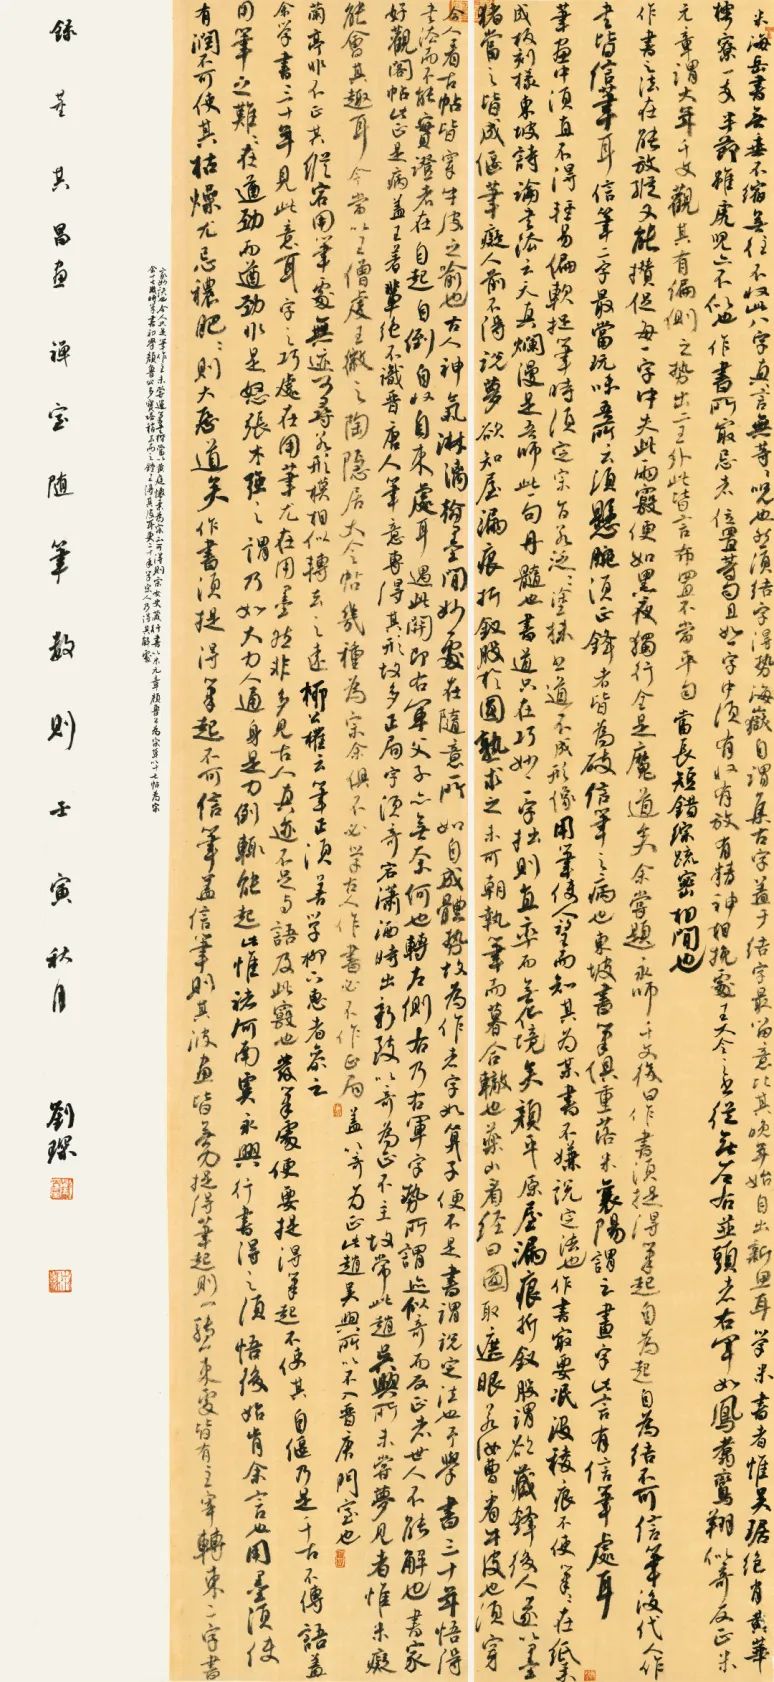 米海岳书无垂不缩无往不收此八字真言無等之咒也然須結字得勢海嶽自謂集古字蓋于結字最留意比其晚年始自出新思耳學米書者惟吳琚絕肖黃華
樗寮一支半節雖虎兒亦不似也作書所最忌者位置等勻且如一字中須有收有放有精神相挽處王大令之書從無左右並頭者右軍如鳳翥鸞翔似奇反正米
元章謂大年千文觀其有偏側之勢出二王外此皆言布置不當平勻當長短錯綜疏密相間也
作書之法在能放縱又能攢促每一字中失此兩竅便如黑夜獨行全是魔道矣余嘗題永師千文後曰作書須提得筆起自為起自為結不可信筆後代人作
書皆信筆耳信筆二字最當玩味吾所云須懸腕須正鋒者皆為破信筆之病也東坡書筆俱重落米襄陽謂之畫字此言有信筆處耳
筆畫中須直不得輕易偏軟捉筆時須定宗旨若泛泛塗抹書道不成形像用筆使人望而知其為某書不嫌說定法也作書最要泯沒稜痕不使筆筆在紙素
成板刻樣東坡詩論書法云天真爛漫是吾師此一句丹髓也書道只在巧妙二字拙則直率而無化境矣顏平原屋漏痕折釵股謂欲藏鋒後人遂以墨
豬當之皆成偃筆癡人前不得說夢欲知屋漏痕折釵股於圓熟求之未可朝執筆而暮合轍也藥山看經曰圖取遮眼若汝曹看牛皮也須穿
今人看古帖皆穿牛皮之喻也古人神氣淋漓翰墨間妙處在隨意所如自成體勢故為作者字如算子便不是書謂說定法也予學書三十年悟得
書法而不能實證者在自起自倒自收自束處耳過此關即右軍父子亦無奈何也轉左側右乃右軍字勢所謂迹似奇而反正者世人不能解也書家
好觀閣帖此正是病蓋王著輩絕不識晉唐人筆意專得其形故多正局字須奇宕瀟洒時出新致以奇為正不主故常此趙吳興所未嘗夢見者惟米癡
能會其趣耳今當以王僧虔王徽之陶隱居大令帖幾種為宗余俱不必學古人作書必不作正局蓋以奇為正此趙吳興所以不入晉唐門室也
蘭亭非不正其縱宕用筆處無迹可尋若形模相似轉去之遠柳公權云筆正須善學柳下惠者參之
余學書三十年見此意耳字之巧處在用筆尤在用墨然非多見古人真迹不足与語及此竅也發筆處便要提得筆起不使其自偃乃是千古不傳語蓋
用筆之難難在遒勁而遒勁非是怒張木強之謂乃如大力人通身是力倒輒能起此惟褚河南虞永興行書得之須悟後始肯余言也用墨須使
有潤不可使其枯燥尤忌穠肥肥則大惡道矣作書須提得筆起不可信筆蓋信筆則其波畫皆無力提得筆起則一轉一束處皆有主宰轉束二字書
家妙訣也今人只是筆作主未嘗運筆
錄董其昌畫禅室随筆数則壬寅秋月 劉琛